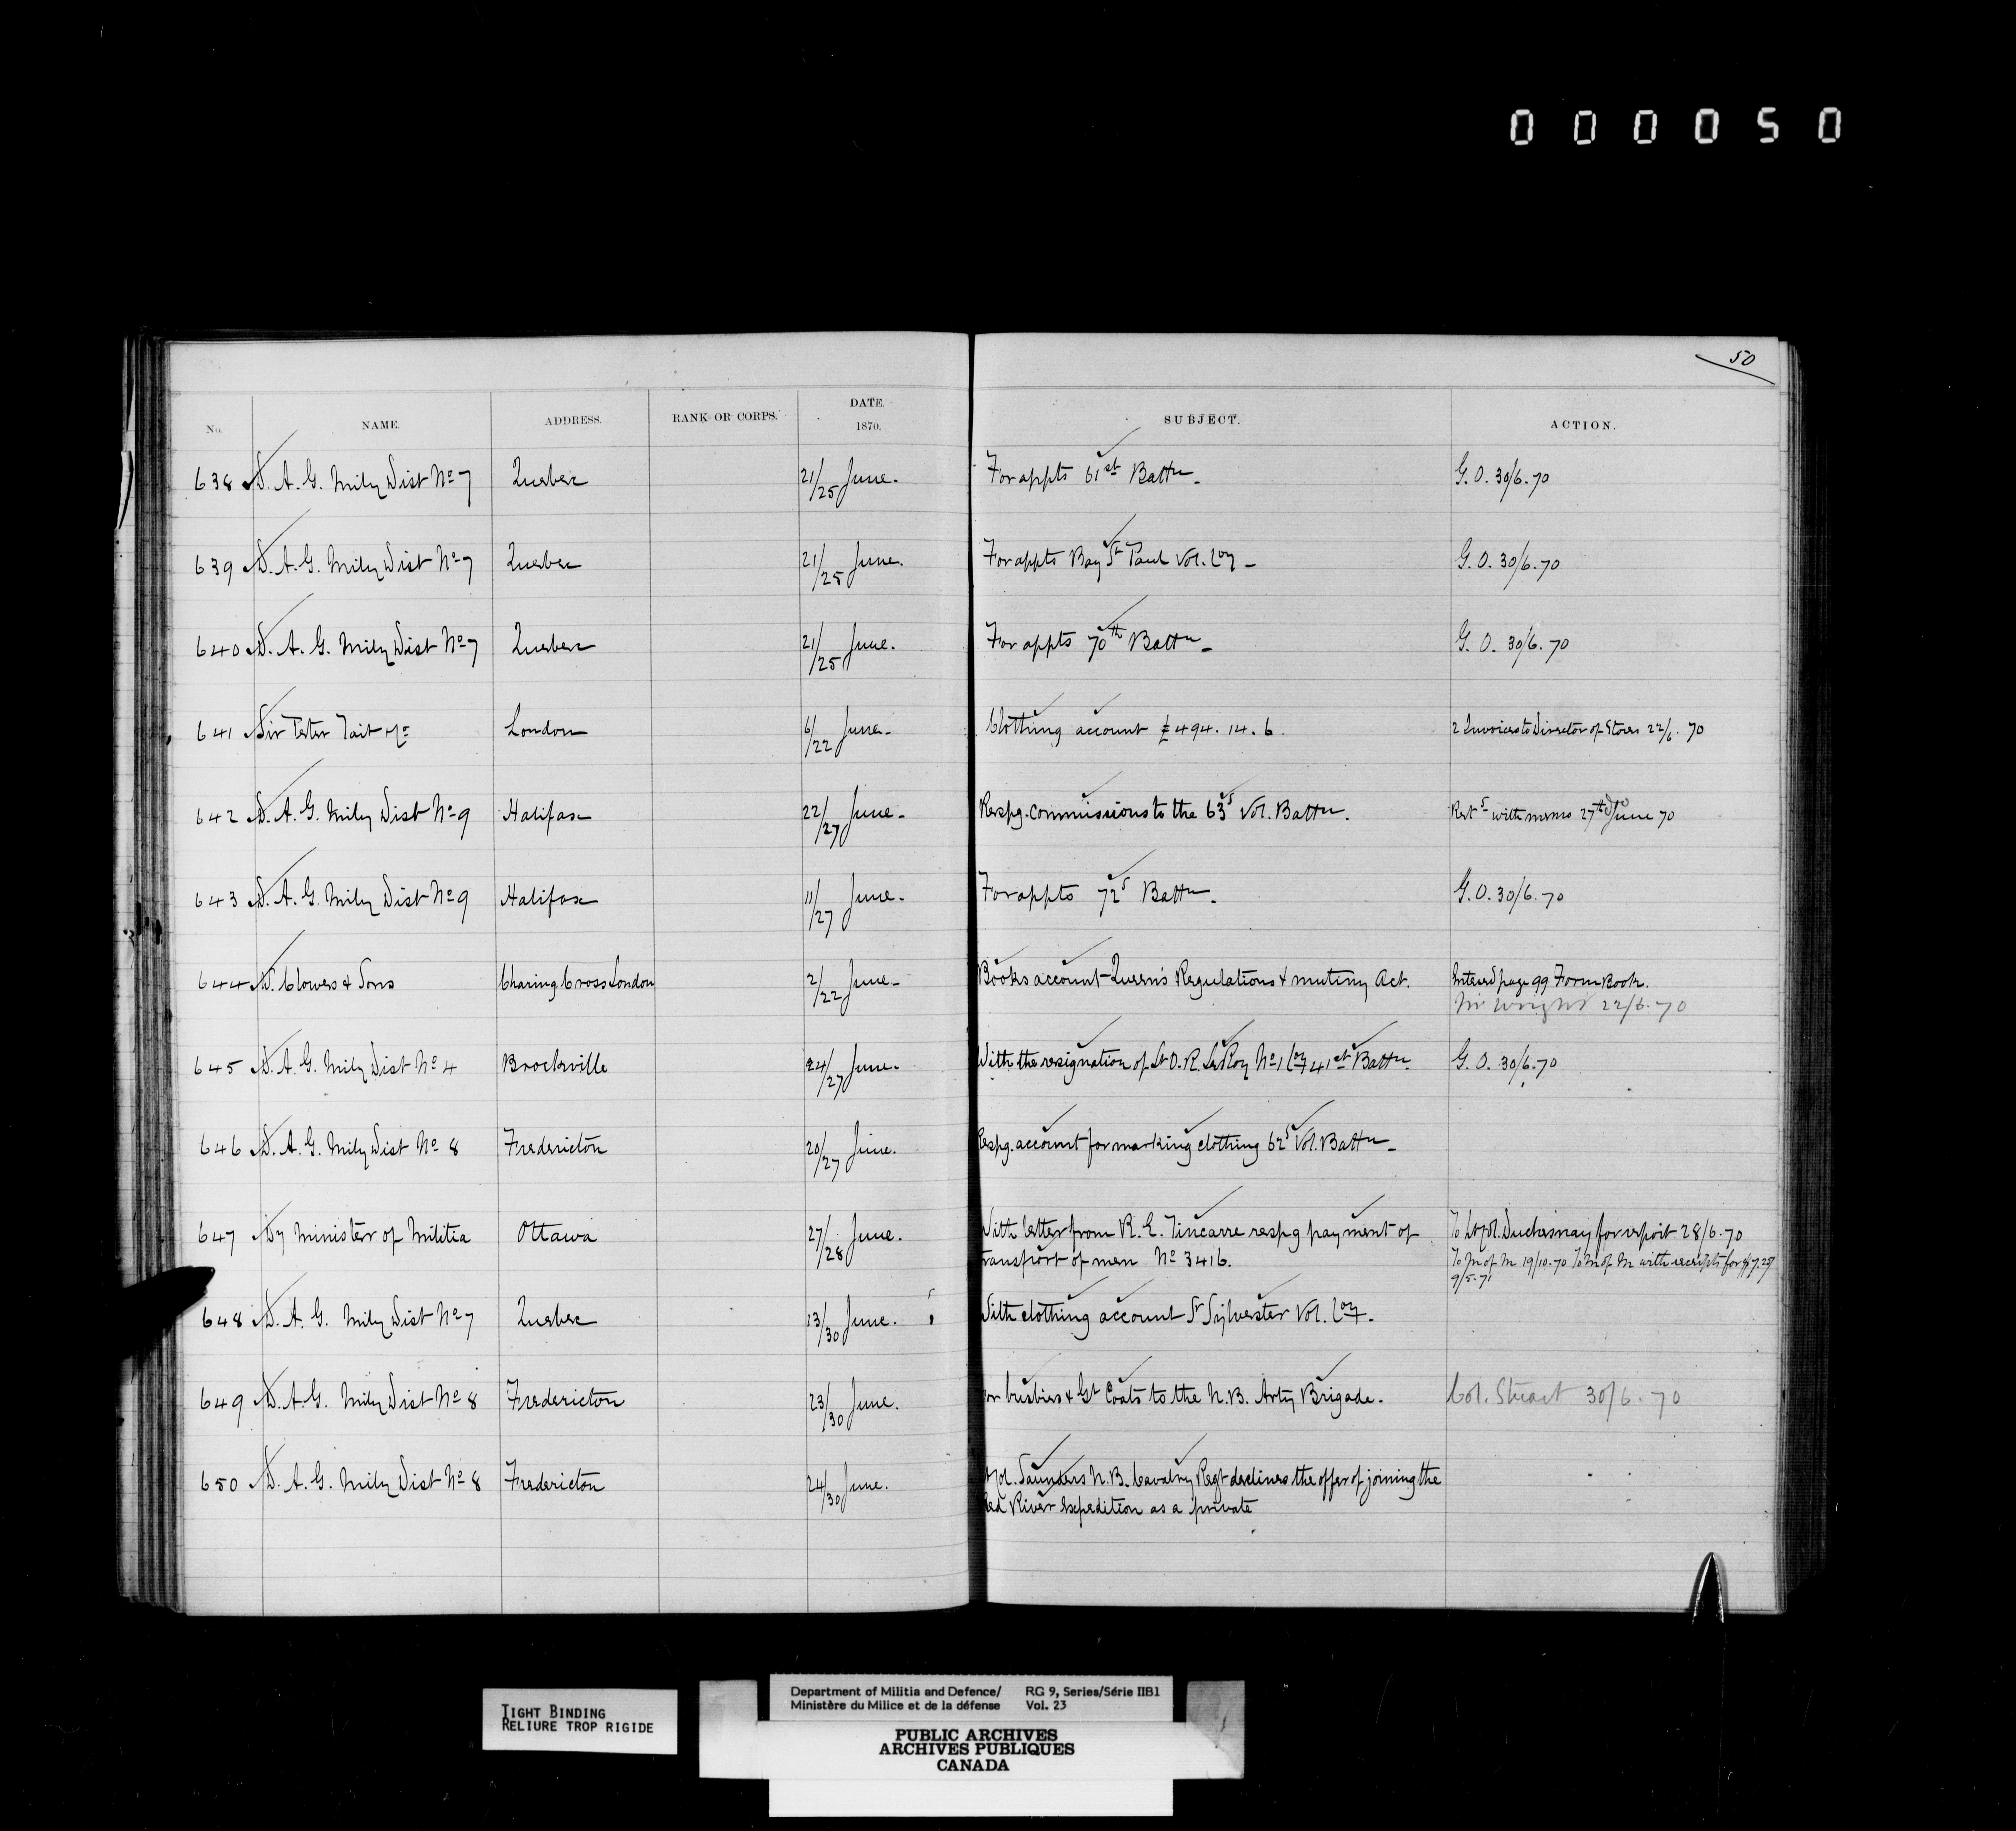 000050
50
No. NAME. ADDRESS. RANK OR CORPS. DATE. 1870. SUBJECT. ACTION.
638 D. A. G. Mily Dist No 7 Quebec 21/25 June. For appts 61st Battn. G. O. 30/6. 70
639 D. A. G. Mily Dist No 7 Quebec 21/25 June. For appts Bay St Paul Vol. Coy G. O. 30/6. 70
640 D. A. G. Mily Dist No 7 Quebec 21/25 June. For appts 70th Battn G. O. 30/6. 70
641 Sir Peter Tait London 6/22 June. Clothing account £494. 14. 6. 2 Invoices to Director of Stores 22/6. 70
642 D. A. G. Mily Dist No 9 Halifax 22/27 June. Respg. commissions to the 63 Vol. Battn. with memo 27th June 70
643 D. A. G. Mily Dist No 9 Halifax 11/27 June. For appts 72 Battn. G. O. 30/6. 70
644 W. Clowes & Sons Charing Cross London 2/22 June. Books account Queen's Regulations & mutiny Act. Entered page 99 Form Book.
Mr Wright 22/6. 70
645 D. A. G. Mily Dist No 4 Brockville 24/27 June. With the resignation of Lt O. R. LeRoy No 1 Coy 41st Battn. G. O. 30/6. 70
646 D. A. G. Mily Dist No 8 Fredericton 20/27 June. Respg. account for marking clothing 62 Vol. Battn
647 Dy Minister of Militia Ottawa 27/28 June. With letter from R. E. respg payment of To Lt Col. Duchesnay for report 28/6. 70
transport of men No 3416. To M of M 19/10. 70 To M of M with receipts for
9/5. 71
648 D. A. G. Mily Dist No 7 Quebec 13/30 June. With clothing account St Sylvester Vol. Coy.
649 D. A. G. Mily Dist No 8 Fredericton 23/30 June. For busbies & Gt Coats to the N. B. Arty Brigade. Col. Stuart 30/6. 70
650 D. A. G. Mily Dist No 8 Fredericton 24/30 June. Lt Col. Saunders N. B. Cavalry Regt declines the offer of joining the
Red River Expedition as a private
TIGHT BINDING
RELIURE TROP RIGIDE
Department of Militia and Defence/ RG 9, Series/Série IIB1
Ministère du Milice et de la défense Vol. 23
PUBLIC ARCHIVES
ARCHIVES PUBLIQUES
CANADA